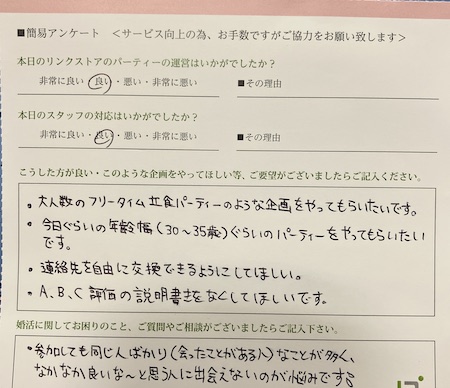 ■簡易アンケート ＜サービス向上の為、お手数ですがご協力をお願い致します＞
本日のリンクストアのパーティーの運営はいかがでしたか？
非常に良い・良い・悪い・非常に悪い ■その理由
本日のスタッフの対応はいかがでしたか？
非常に良い・良い・悪い・非常に悪い ■その理由
こうした方が良い・このような企画をやってほしい等、ご要望がございましたらご記入ください。
・大人数のフリータイム立食パーティーのような企画をやってもらいたいです。
・今日ぐらいの年齢幅（30～35歳）ぐらいのパーティーをやってもらいたい
です。
・連絡先を自由に交換できるようにしてほしい。
・A、B、C評価の説明書きをなくしてほしいです。
婚活に関してお困りのこと、ご質問やご相談がございましたらご記入下さい。
・参加しても同じ人ばかり（会ったことがある人）なことが多く、
なかなか良いな～と思う人に出会えないのが悩みです